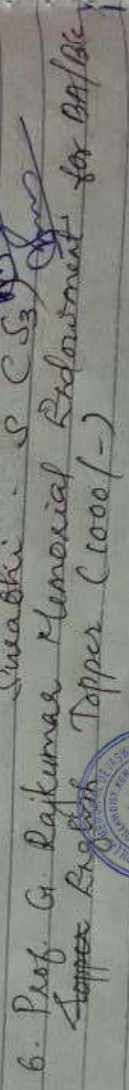 Surabhi . S (S3)
6. Prof. G. Rajkumar Memorial Endowment for BA/BSc
English Topper (1000/-)